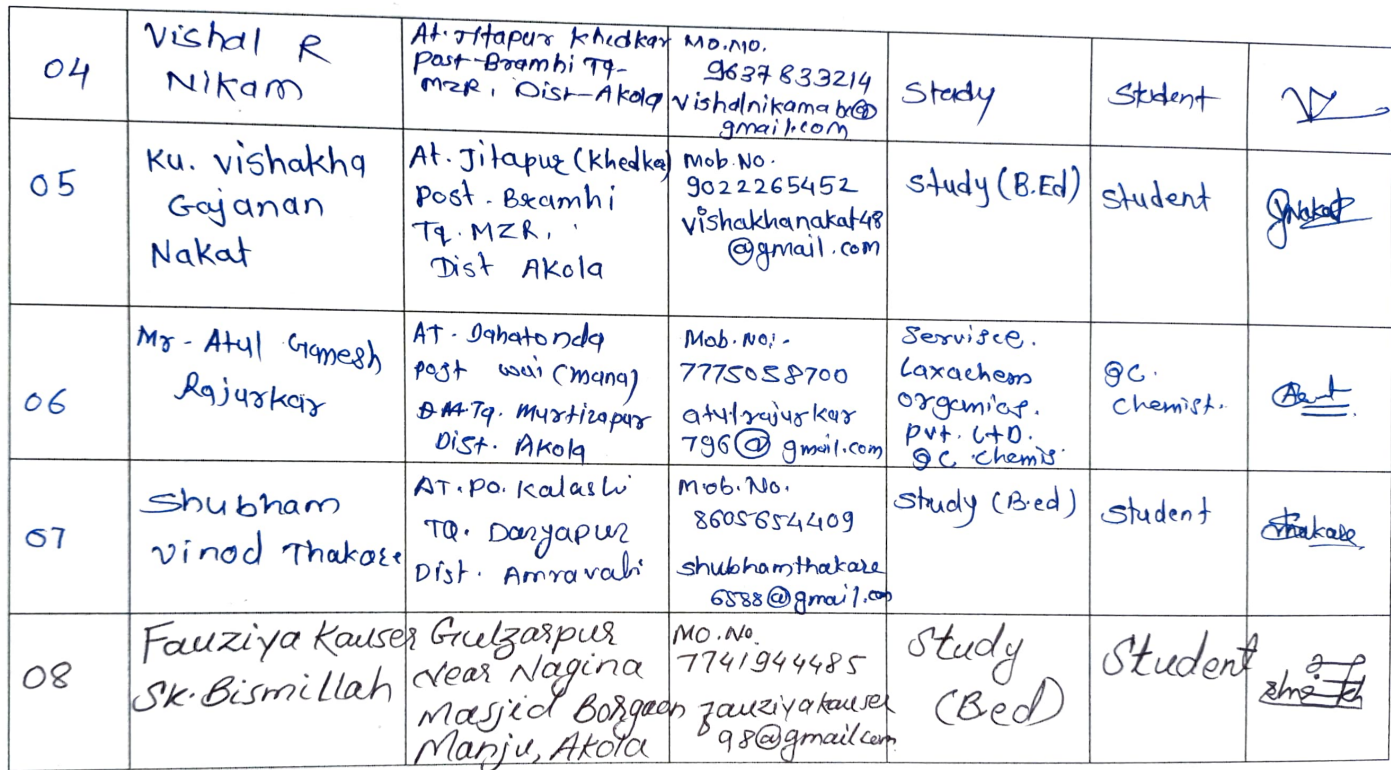 04
Vishal R
Nikam
At. Jitapur Khedkar
Post-Bramhi Tq-
MZR, Dist-Akola
Mo.no.
9637833214
gmail.com
Study
Student
05
Ku. Vishakha
Gajanan
Nakat
At. Jitapur (Khedka)
Post. Bramhi
Tq. MZR,
Dist Akola
Mob.No.
9022265452
vishakhanakat48
@gmail.com
Study (B.Ed)
Student
Nakat
06
Mr- Atul Ganesh
Rajurkar
AT. Dahatonda
post wai (mana)
Tq. Murtizapur
Dist. Akola
Mob. No:-
7775058700
atulrajurkar
796@gmail.com
Servisce.
Laxachem
organics.
Pvt. LTD.
QC chemis
QC.
chemist.
07
Shubham
Vinod Thakare
AT.PO. Kalashi
TQ. Daryapur
Dist. Amravati
Mob.No.
8605654409
shubhamthakare
6588@gmail.com
Study (B.ed)
Student
Thakare
08
Fauziya Kauser
SK.Bismillah
Gulzarpur
Near Nagina
Masjid Borgaon
Manju, Akola
MO.No.
7741944485
fauziyakauser
98@gmailcom
Study
(Bed)
Student